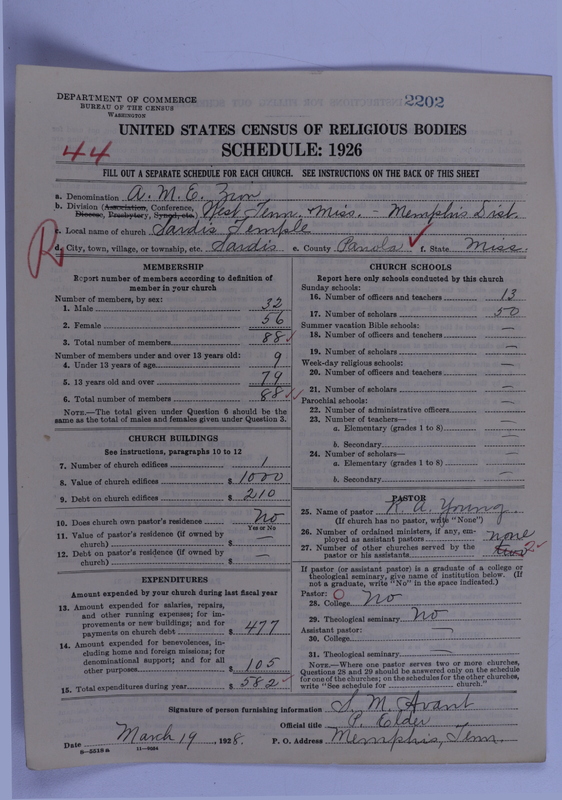 DEPARTMENT OF COMMERCE
BUREAU OF THE CENSUS
WASHINGTON
2202
UNITED STATES CENSUS OF RELIGIOUS BODIES
SCHEDULE: 1926
44
FILL OUT A SEPARATE SCHEDULE FOR EACH CHURCH. SEE INSTRUCTIONS ON THE BACK OF THIS SHEET
a. Denomination A. M. E. Zion
b. Division (Association, Conference, Diocese, Presbytery, Synod, etc.) West Tenn. & Miss. - Memphis Dist.
c. Local name of church Sardis Temple
R
d. City, town, village, or township, etc. Sardis e. County Panola f. State Miss.
MEMBERSHIP
Report number of members according to definition of
member in your church
Number of members, by sex:
1. Male 32
2. Female 56
3. Total number of members 88
Number of members under and over 13 years old:
4. Under 13 years of age 9
5. 13 years old and over 79
6. Total number of members 88
NOTE.—The total given under Question 6 should be the
same as the total of males and females given under Question 3.
CHURCH BUILDINGS
See instructions, paragraphs 10 to 12
7. Number of church edifices 1
8. Value of church edifices $ 1000
9. Debt on church edifices $ 210
10. Does church own pastor's residence No
Yes or No
11. Value of pastor's residence (if owned by
church) $ —
12. Debt on pastor's residence (if owned by
church) $ —
EXPENDITURES
Amount expended by your church during last fiscal year
13. Amount expended for salaries, repairs,
and other running expenses; for im-
provements or new buildings; and for
payments on church debt $ 477
14. Amount expended for benevolences, in-
cluding home and foreign missions; for
denominational support; and for all
other purposes $ 105
15. Total expenditures during year $ 582
CHURCH SCHOOLS
Report here only schools conducted by this church
Sunday schools:
16. Number of officers and teachers 13
17. Number of scholars 50
Summer vacation Bible schools:
18. Number of officers and teachers —
19. Number of scholars —
Week-day religious schools:
20. Number of officers and teachers —
21. Number of scholars —
Parochial schools:
22. Number of administrative officers —
23. Number of teachers—
a. Elementary (grades 1 to 8) —
b. Secondary —
24. Number of scholars—
a. Elementary (grades 1 to 8) —
b. Secondary —
PASTOR
25. Name of pastor R. A. Young
(If church has no pastor, write "None")
26. Number of ordained ministers, if any, em-
ployed as assistant pastors none
27. Number of other churches served by the
pastor or his assistants 2
If pastor (or assistant pastor) is a graduate of a college or
theological seminary, give name of institution below. (If
not a graduate, write "No" in the space indicated.)
Pastor: O
28. College No
29. Theological seminary No
Assistant pastor:
30. College —
31. Theological seminary —
NOTE.—Where one pastor serves two or more churches,
Questions 28 and 29 should be answered only on the schedule
for one of the churches; on the schedules for the other churches,
write "See schedule for church."
Signature of person furnishing information S. M. Avant
Official title P. Elder
Date March 19, 1928. P. O. Address Memphis, Tenn.
8—5518a 11—9084